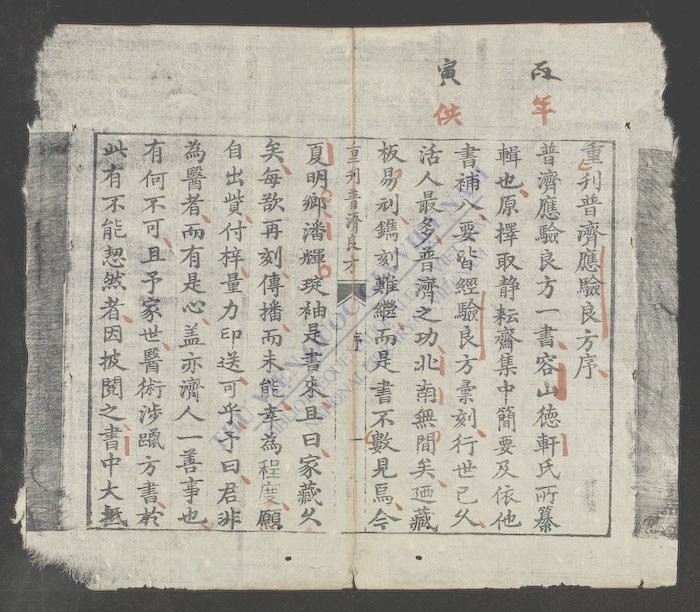 丙年
寅供
重刊普濟應驗良方序
普濟應驗良方一書容山德軒氏所纂
輯也原擇取静耘齋集中簡要及依他
書補入要皆經驗良方彙刻行世已久
活人最多普濟之功北南無間矣廼藏
板易刓鐫刻難繼而是書不數見焉今
重刊普濟良方
序
一
夏明卿潘輝琁袖是書來且曰家藏久
矣每欲再刻傳播而未能幸為程度願
自出貲付梓量力印送可乎予曰君非
為醫者而有是心盖亦濟人一善事也
有何不可且予家世醫術涉躐方書於
此有不能恝然者因披閱之書中大抵
THƯ VIỆN QUỐC GIA VIỆT NAM
BIBLIOTHÈQUE NATIONALE DU VIETNAM
NATIONAL LIBRARY OF VIETNAM